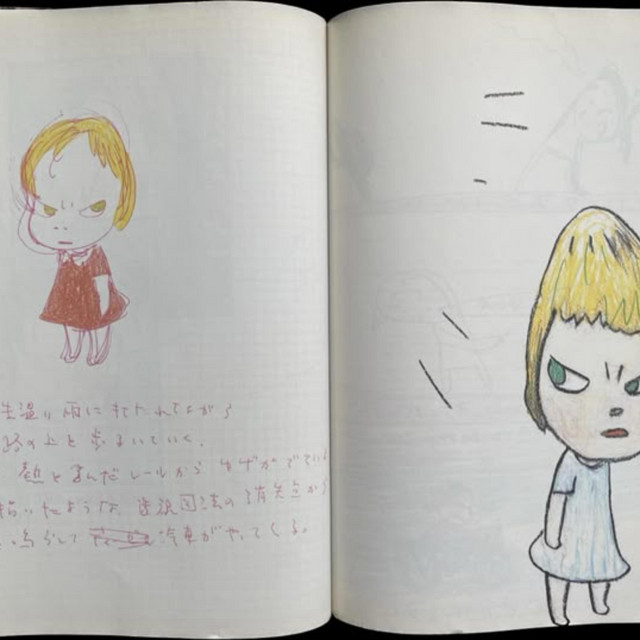 生温い雨に打たれてながら
路の上を歩いていく。
熱を帯んだレールから ゆげがでている
描いたような 遠視図法の消失点から
鳴らして 汽車がやってくる。